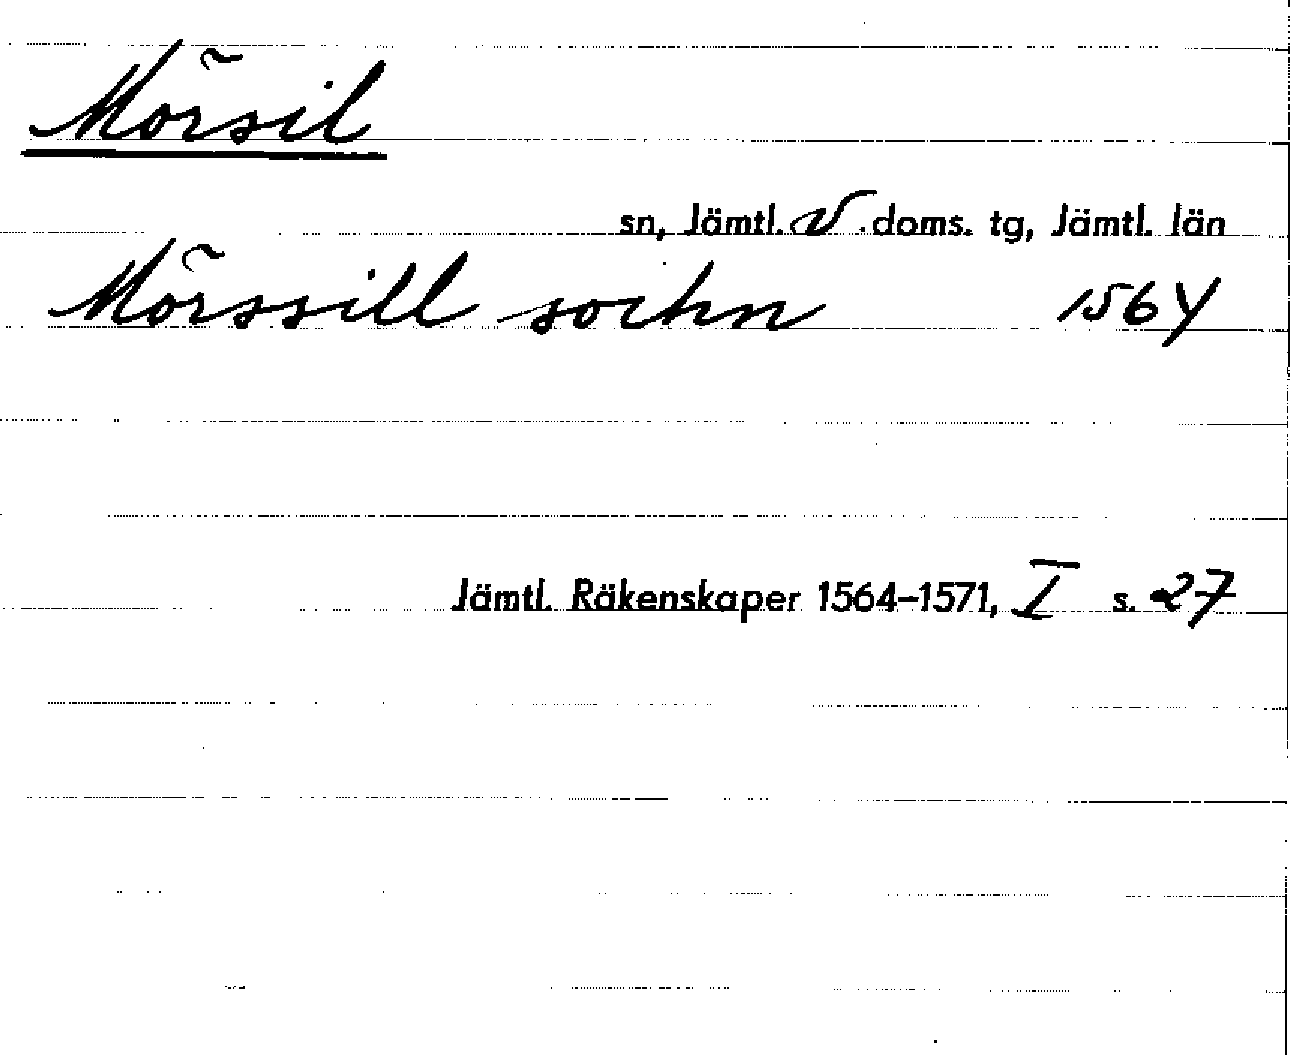 Mörsil
sn, Jämtl. V. doms. tg, Jämtl. län
Mörssill sochn 1564
Jämtl. Räkenskaper 1564–1571, I s. 27